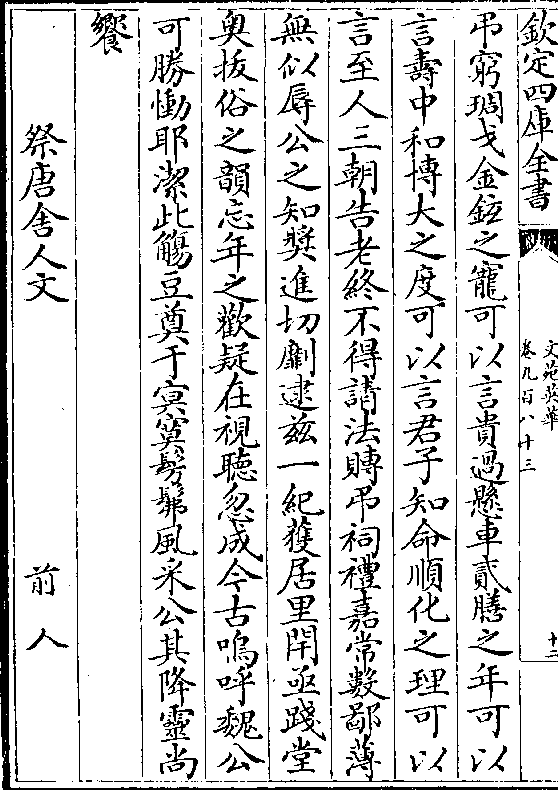 欽定四庫全書
文苑英華
卷九百八十三
十二
弔窮琱戈金鉉之寵可以言貴過懸車貳膳之年可以
言壽中和博大之度可以言君子知命順化之理可以
言至人三朝告老終不得請法賻弔祠禮嘉常數鄙薄
無似辱公之知奬進切劘逮兹一紀獲居里閈亟踐堂
奥抜俗之韻忘年之歡疑在視聽忽成今古嗚呼魏公
可勝慟耶潔此觴豆奠于冥寞髣髴風采公其降靈尚
饗
祭唐舍人文 前人